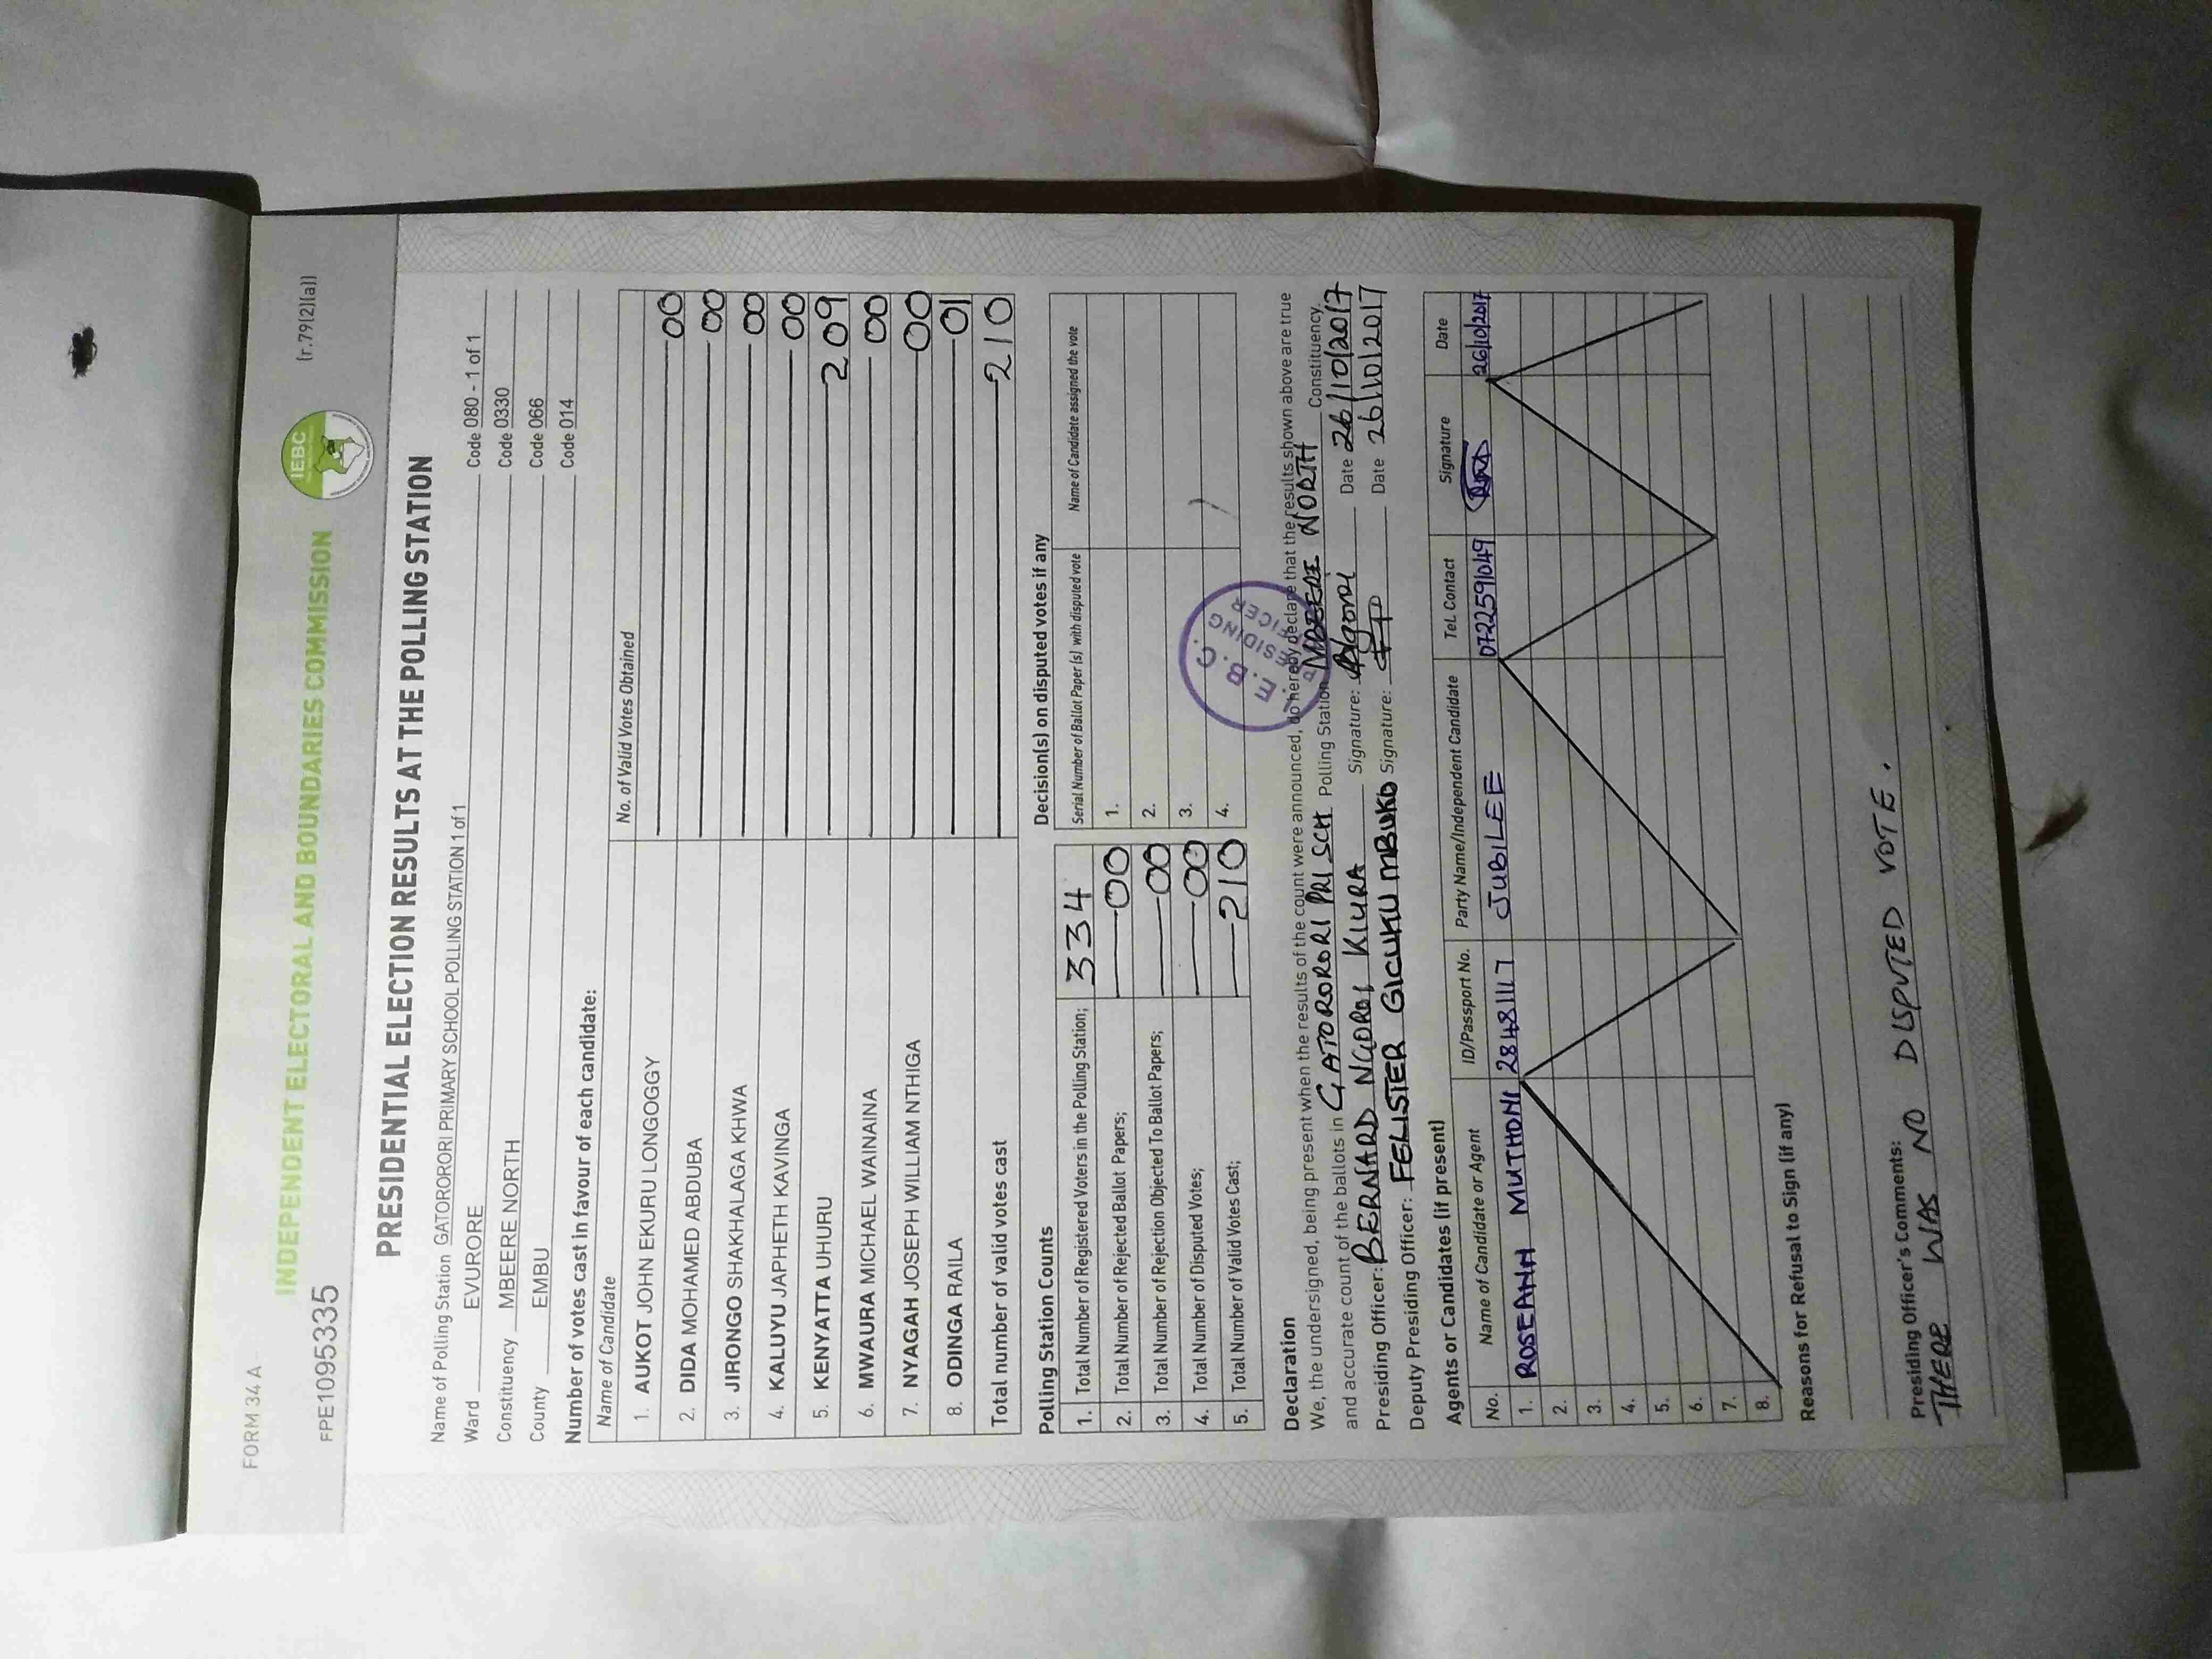 FORM 34 A
(r.79(2)(a))
INDEPENDENT ELECTORAL AND BOUNDARIES COMMISSION
IEBC
FPE1095335
PRESIDENTIAL ELECTION RESULTS AT THE POLLING STATION
Name of Polling Station GATORORORI PRIMARY SCHOOL POLLING STATION 1 of 1 Code 080 - 1 of 1
Ward EVURORE Code 0330
Constituency MBEERE NORTH Code 066
County EMBU Code 014
Number of votes cast in favour of each candidate:
Name of Candidate No. of Valid Votes Obtained
1. AUKOT JOHN EKURU LONGOGGY 00
2. DIDA MOHAMED ABDUBA 00
3. JIRONGO SHAKHALAGA KHWA 00
4. KALUYU JAPHETH KAVINGA 00
5. KENYATTA UHURU 209
6. MWAURA MICHAEL WAINAINA 00
7. NYAGAH JOSEPH WILLIAM NTHIGA 00
8. ODINGA RAILA 01
Total number of valid votes cast 210
Polling Station Counts
1. Total Number of Registered Voters in the Polling Station; 334
2. Total Number of Rejected Ballot Papers; 00
3. Total Number of Rejection Objected To Ballot Papers; 00
4. Total Number of Disputed Votes; 00
5. Total Number of Valid Votes Cast; 210
Decision(s) on disputed votes if any
Serial Number of Ballot Paper(s) with disputed vote Name of Candidate assigned the vote
1.
2.
3.
4.
E.B.C.
PRESIDING
OFFICER
Declaration
We, the undersigned, being present when the results of the count were announced, do hereby declare that the results shown above are true
and accurate count of the ballots in GATORORORI PRI SCH Polling Station MBEERE NORTH Constituency.
Presiding Officer: BERNARD NGOROI KIURA Signature: Date 26/10/2017
Deputy Presiding Officer: FELISTER GICUKU MBUKO Signature: Date 26/10/2017
Agents or Candidates (if present)
No. Name of Candidate or Agent ID/Passport No. Party Name/Independent Candidate Tel. Contact Signature Date
1. ROSEANN MUTHONI 28481117 JUBILEE 0722591049 26/10/2017
2.
3.
4.
5.
6.
7.
8.
Reasons for Refusal to Sign (if any)
Presiding Officer's Comments:
THERE WAS NO DISPUTED VOTE.